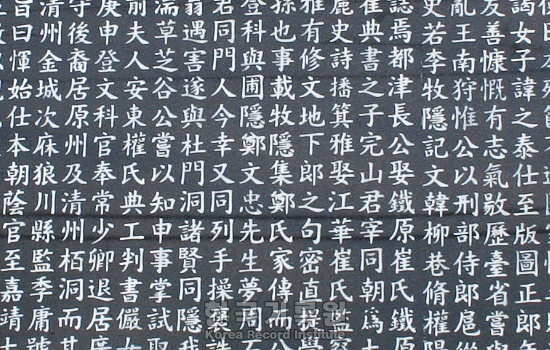 謁女子諱之泰仕至版圖正郎
友善慷慨有志氣敭歷臺省嘗與
亂王南狩惟公以刑部侍郎扈
史若李牧隱記文韓柳巷脩權陽
誌焉都津長公娶鐵原崔氏鐵原
崔典書之子完山君宰同朝爲大
史詩播箕雅娶江華崔氏監察
雅有修文地下郎之句密直提學
孫也事載牧隱集鄭氏家傳而
登科與圃隱鄭文忠先生夢周
君同門人今又同列手操褒誄
翁遇害遂與杜門洞諸賢同隱我
湍草芝谷公嘗以知申事掌試取
前夫人安東權氏典工判書儼
庚申登文科官奉常少卿退居
守後裔居原州及清州栢洞而
清州金城次麻狼川縣監季庸
曰惲始仕本朝蔭官至嘉靖
한국기록원
Korea Record Institute